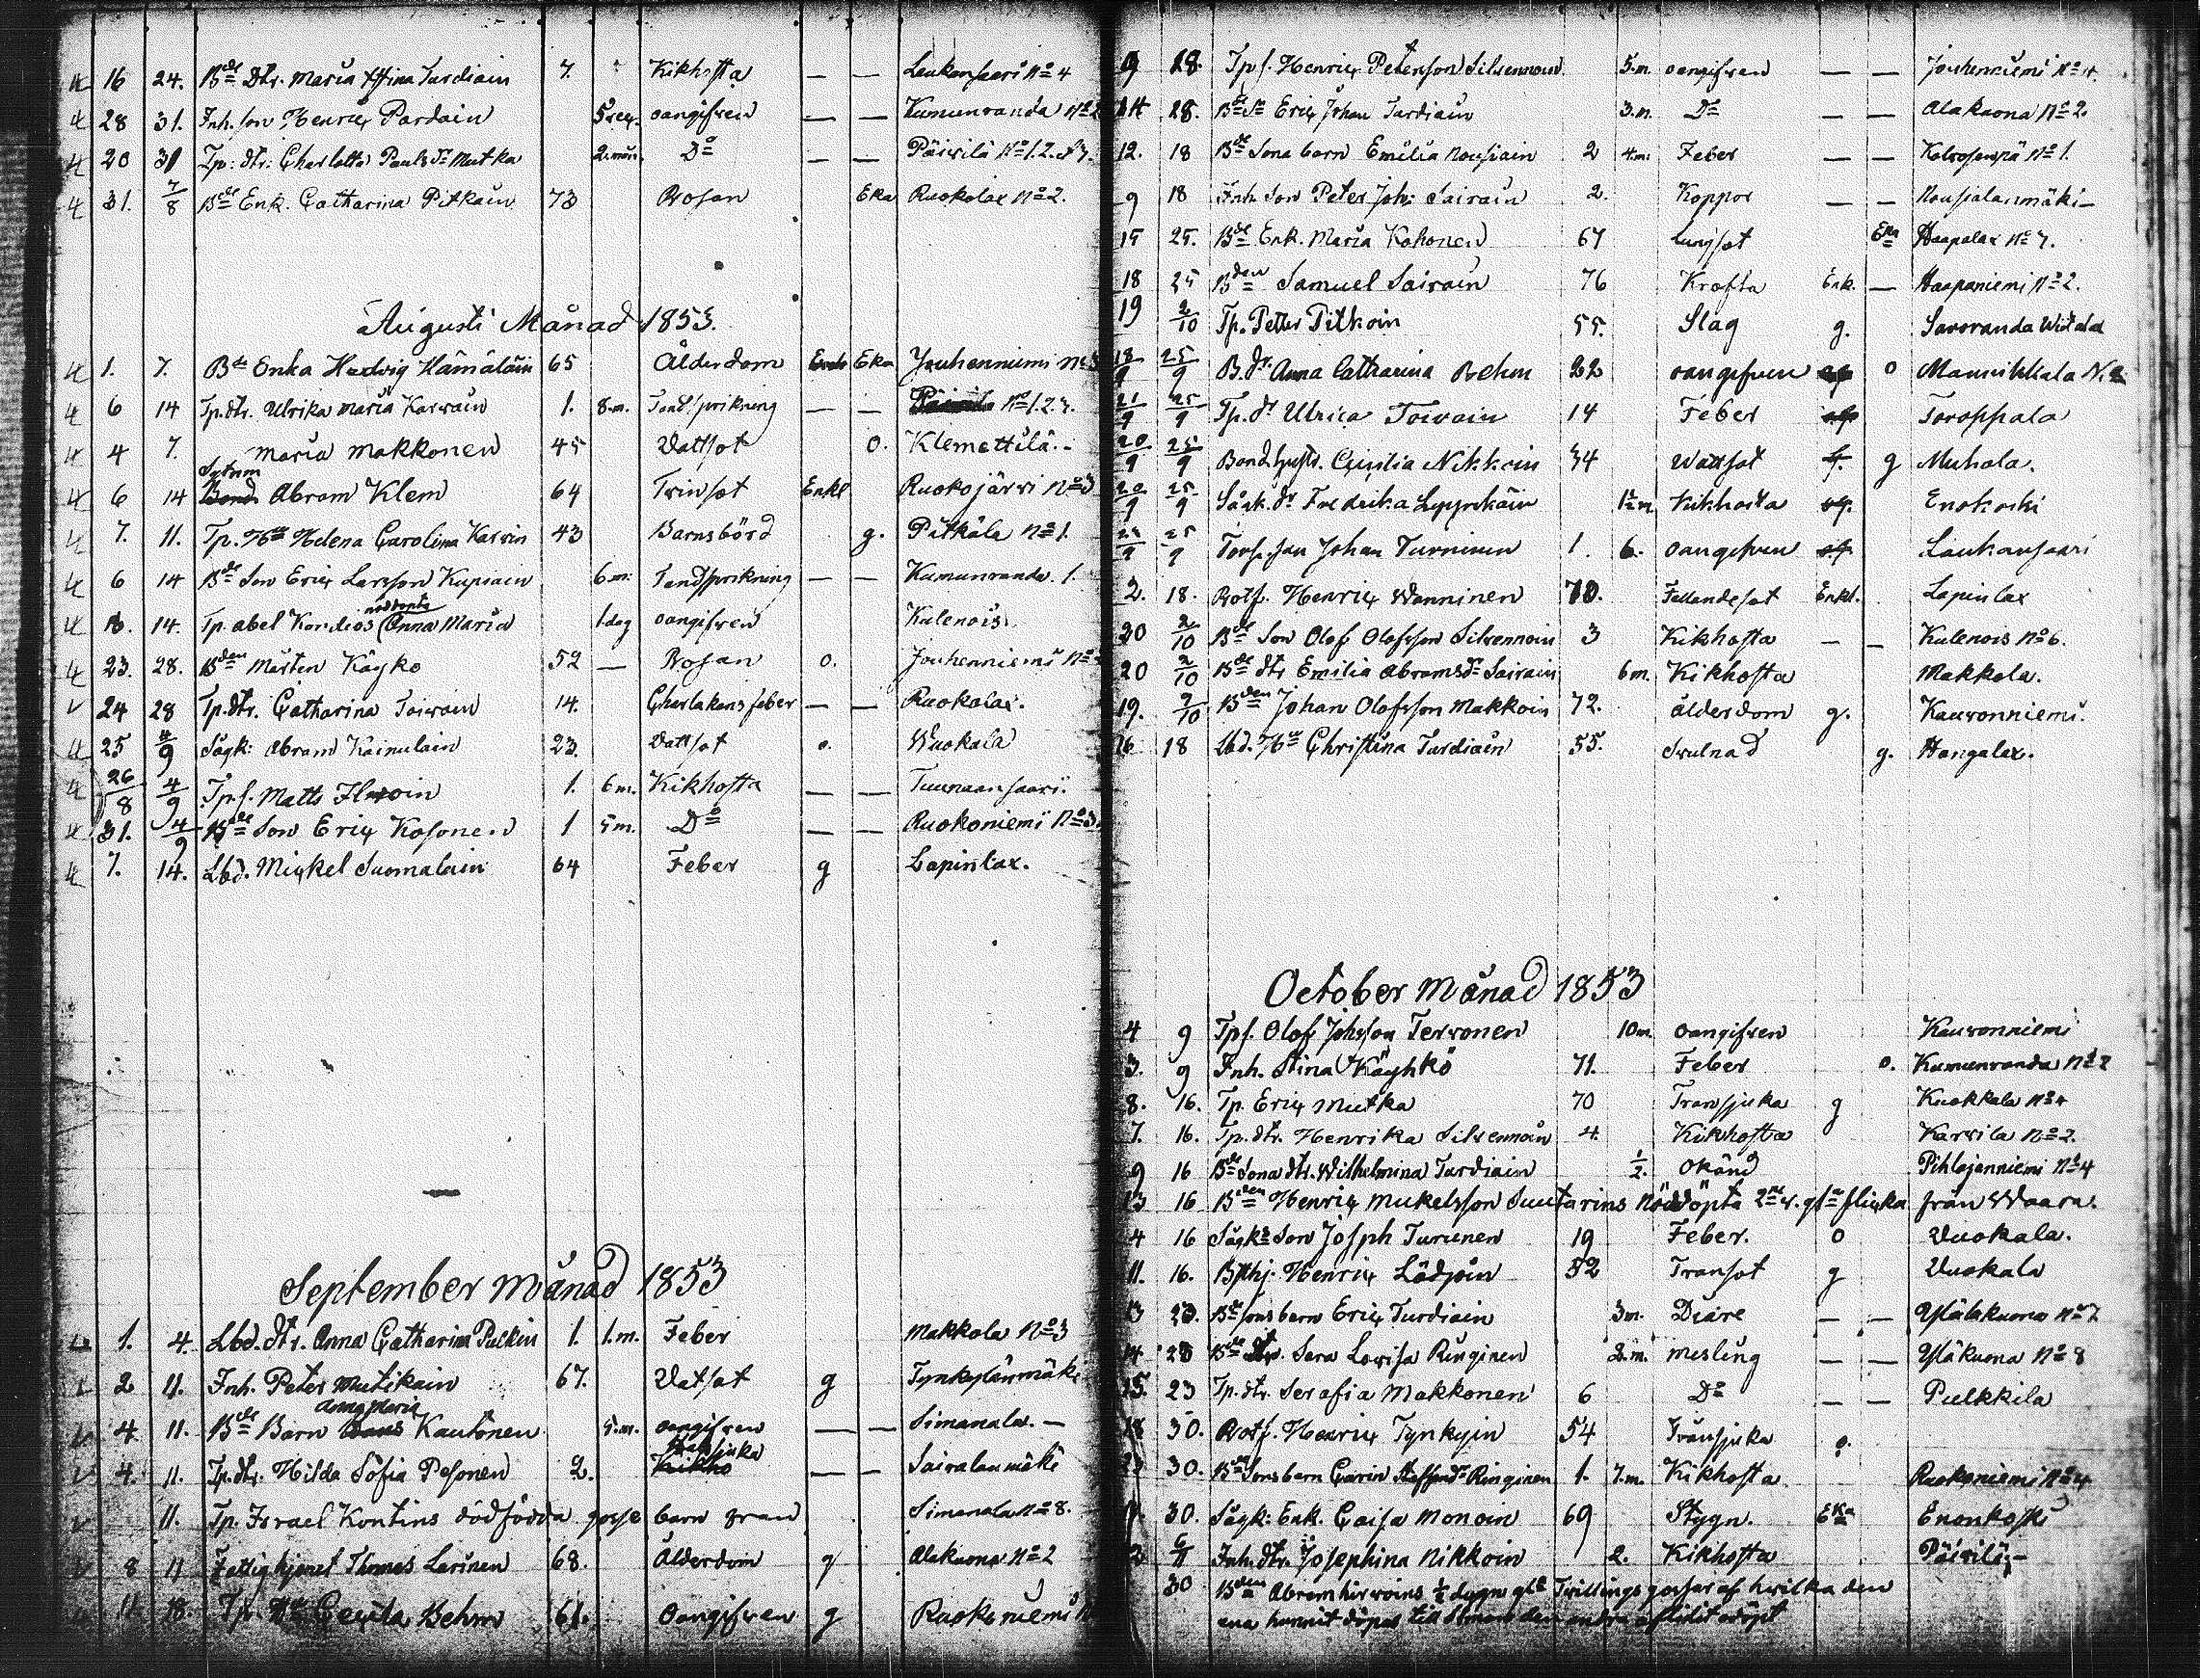 16 24. Bde Dtr. Maria Stina Turdiain 7. Kikhosta — — Laukansaari No 4
28 31. Inh. son Henric Pardain 5 vec. oangifven — — Kumunranda No 2
20 31 Tp: dtr: Charlotta Paulsdr Mutka 2. mån. Do — — Päivilä No 1.2. 3.
31. 7/8 Bde Enk. Catharina Pitkäin 73 Rosan Eka Ruokolax No 2.
Augusti Månad 1853.
1. 7. Bde Enka Hedvig Hämäläin 65 Ålderdom Eka Jouhenniemi No
6 14 Tp. dtr. Ulrika Maria Karvain 1. 8.m. Tandsprikning — — No 1.2.3.
4 7. Maria Makkonen 45 Vattsot o. Klemettilä.
6 14 Abram Klem 64 Tvinsot Enkl Ruokojärvi No 3
7. 11. Tp. Hu Helena Carolina Karvin 43 Barnsbörd g. Pitkälä No 1.
6 14 Bde Son Eric Larsson Kupiain 6.m. Tandsprikning — — Kumunranda. 1.
13. 14. Tp. Abel Kondies nöddöpta Anna Maria 1.dag oangifven Kulenois.
23. 28. Bden Mårten Käyko 52 — Rosan o. Jouhenniemi No
24 28 Tp. dtr. Catharina Toivain 14. Charlakansfeber — — Ruokolax.
25 4/9 Sågk: Abram Kainulain 23. Vattsot o. Vuokala
26/8 4/9 Tp. s. Matts 1. 6m. Kikhosta — — Tuunaansaari.
31. 4/9 Bde Son Eric Kosonen 1 5m. Do — — Ruokoniemi No 3.
7. 14. Lbd. Mickel Suomalain 64 Feber g Lapinlax.
September månad 1853
1. 4. Lbd. dtr. Anna Catharina Pulkin 1. 1.m. Feber Makkola No 3
2 11. Inh. Peter Mutikain 67. Vatsot g Tynkylänmäki
4. 11. Bde Barn Anna Maria Kautonen 5.m. oangifven — — Simanala. —
4. 11. Tp. dtr. Hilda Sofia Pesonen 2. — — Sairalanmäki
11. Tp. Israel Kontins dödfödda gosse barn från Simanala No 8.
8 11 Fattighjonet Thomas Larinen 68. Ålderdom g Alakuona No 2
11 18. Tp. Hu Cecilia Behm 61. Oangifven g Ruokoniemi
9 18. Tp s. Henric Peterson Silvennoin 5.m. oangifven — — Jouhenniemi No 4.
14 28. Bde Sn Eric Johan Turdiain 3.m. Do — — Alakuona No 2.
12. 18 Bde Sona barn Emilia Nousiain 2 4.m. Feber — — Kolvosenpä No 1.
9 18 Inh. Son Peter Joh: Sairain 2. Koppor — — Nousialanmäki —
15 25. Bde Enk. Maria Kohonen 67 Lungsot Eka Haapalax No 7.
18 25 Bden Samuel Sairain 76 Kräfta Enk. — Haapaniemi No 2.
19 2/10 Tp. Petter Pitkoin 55. Slag g. Savoranda
18/9 25/9 B. dr. Anna Catharina Behm 22 oangifven o Mannikkala N. 2
21/9 25/9 Tp. dr Ulrica Toivain 14 Feber Toroppala
20/9 25/9 Bond. hustr. Cecilia Nikkoin 34 Vattsot g Muhola.
20/9 25/9 Sågk. dr Fredrika Leppikäin 1½m Kikhosta Enokoski
25/9 Torp. son Johan Turninen 1. 6. oangifven Laukansaari
2. 18. Rotf. Henric Wanninen 70. Fallandesot Enkl. Lapinlax
20 2/10 Bde Son Olof Olofsson Silvennoin 3 Kikhosta — — Kulenois No 6.
20 2/10 Bde dtr Emilia Abramsdr Sairain 6m. Kikhosta Makkola.
19. 9/10 Bden Johan Olofsson Makkoin 72. ålderdom g. Kauvonniemi.
16 18 Lbd. Hu Christina Turdiain 55. Svulnad g. Hangalax.
October Månad 1853
4 9 Tp s. Olof Johsson Tervonen 10m. oangifven Kauvonniemi
3. 9 Inh. Stina Käyhkö 71. Feber o. Kumunranda No 2
8. 16. Tp. Eric Mutka 70 Transjuka g Kuokkala No 4
7. 16. Tp. dtr. Henrika Silvennoin 4. Kikhosta Karvila No 2.
9 16 Bde Sona dtr. Wilhelmina Turdiain ½. Okänd Pihlajanniemi No 4
13 16 Bden Henric Mickelsson Suutarins Nöddöpta 2 v. gla flicka från Waara.
4 16 Sågks Son Joseph Turunen 19 Feber. o Vuokala.
11. 16. Henric Lädjöin 52 Transot g Vuokala
13 23. Bde sons barn Eric Turdiain 3m. Diare — — Yläkuona No 7
14 23 Bde dtr. Sara Lovisa Ringinen 2.m. mesling — — Yläkuona No 8
15. 23 Tp. dtr. Serafia Makkonen 6 Do — — Pulkkila
18 30. Rotf. Henric Tynkyin 54 Transjuka g. 
23 30. Bde Sons barn Carin Staffansdr Ringinen 1. 7.m. Kikhosta Ruokoniemi No 4
30. Sågk: Enk. Caisa Monoin 69 Stygn. Eka Enonkoski
2 6/11 Inh. dtr. Josephina Nikkoin 2. Kikhosta Päivilä —
30 Bden Abram Hirvoins ½ dygn gla Tvillings gossar af hvilka den
ena hunnit döpas till Simon den andra aflidit odöpt